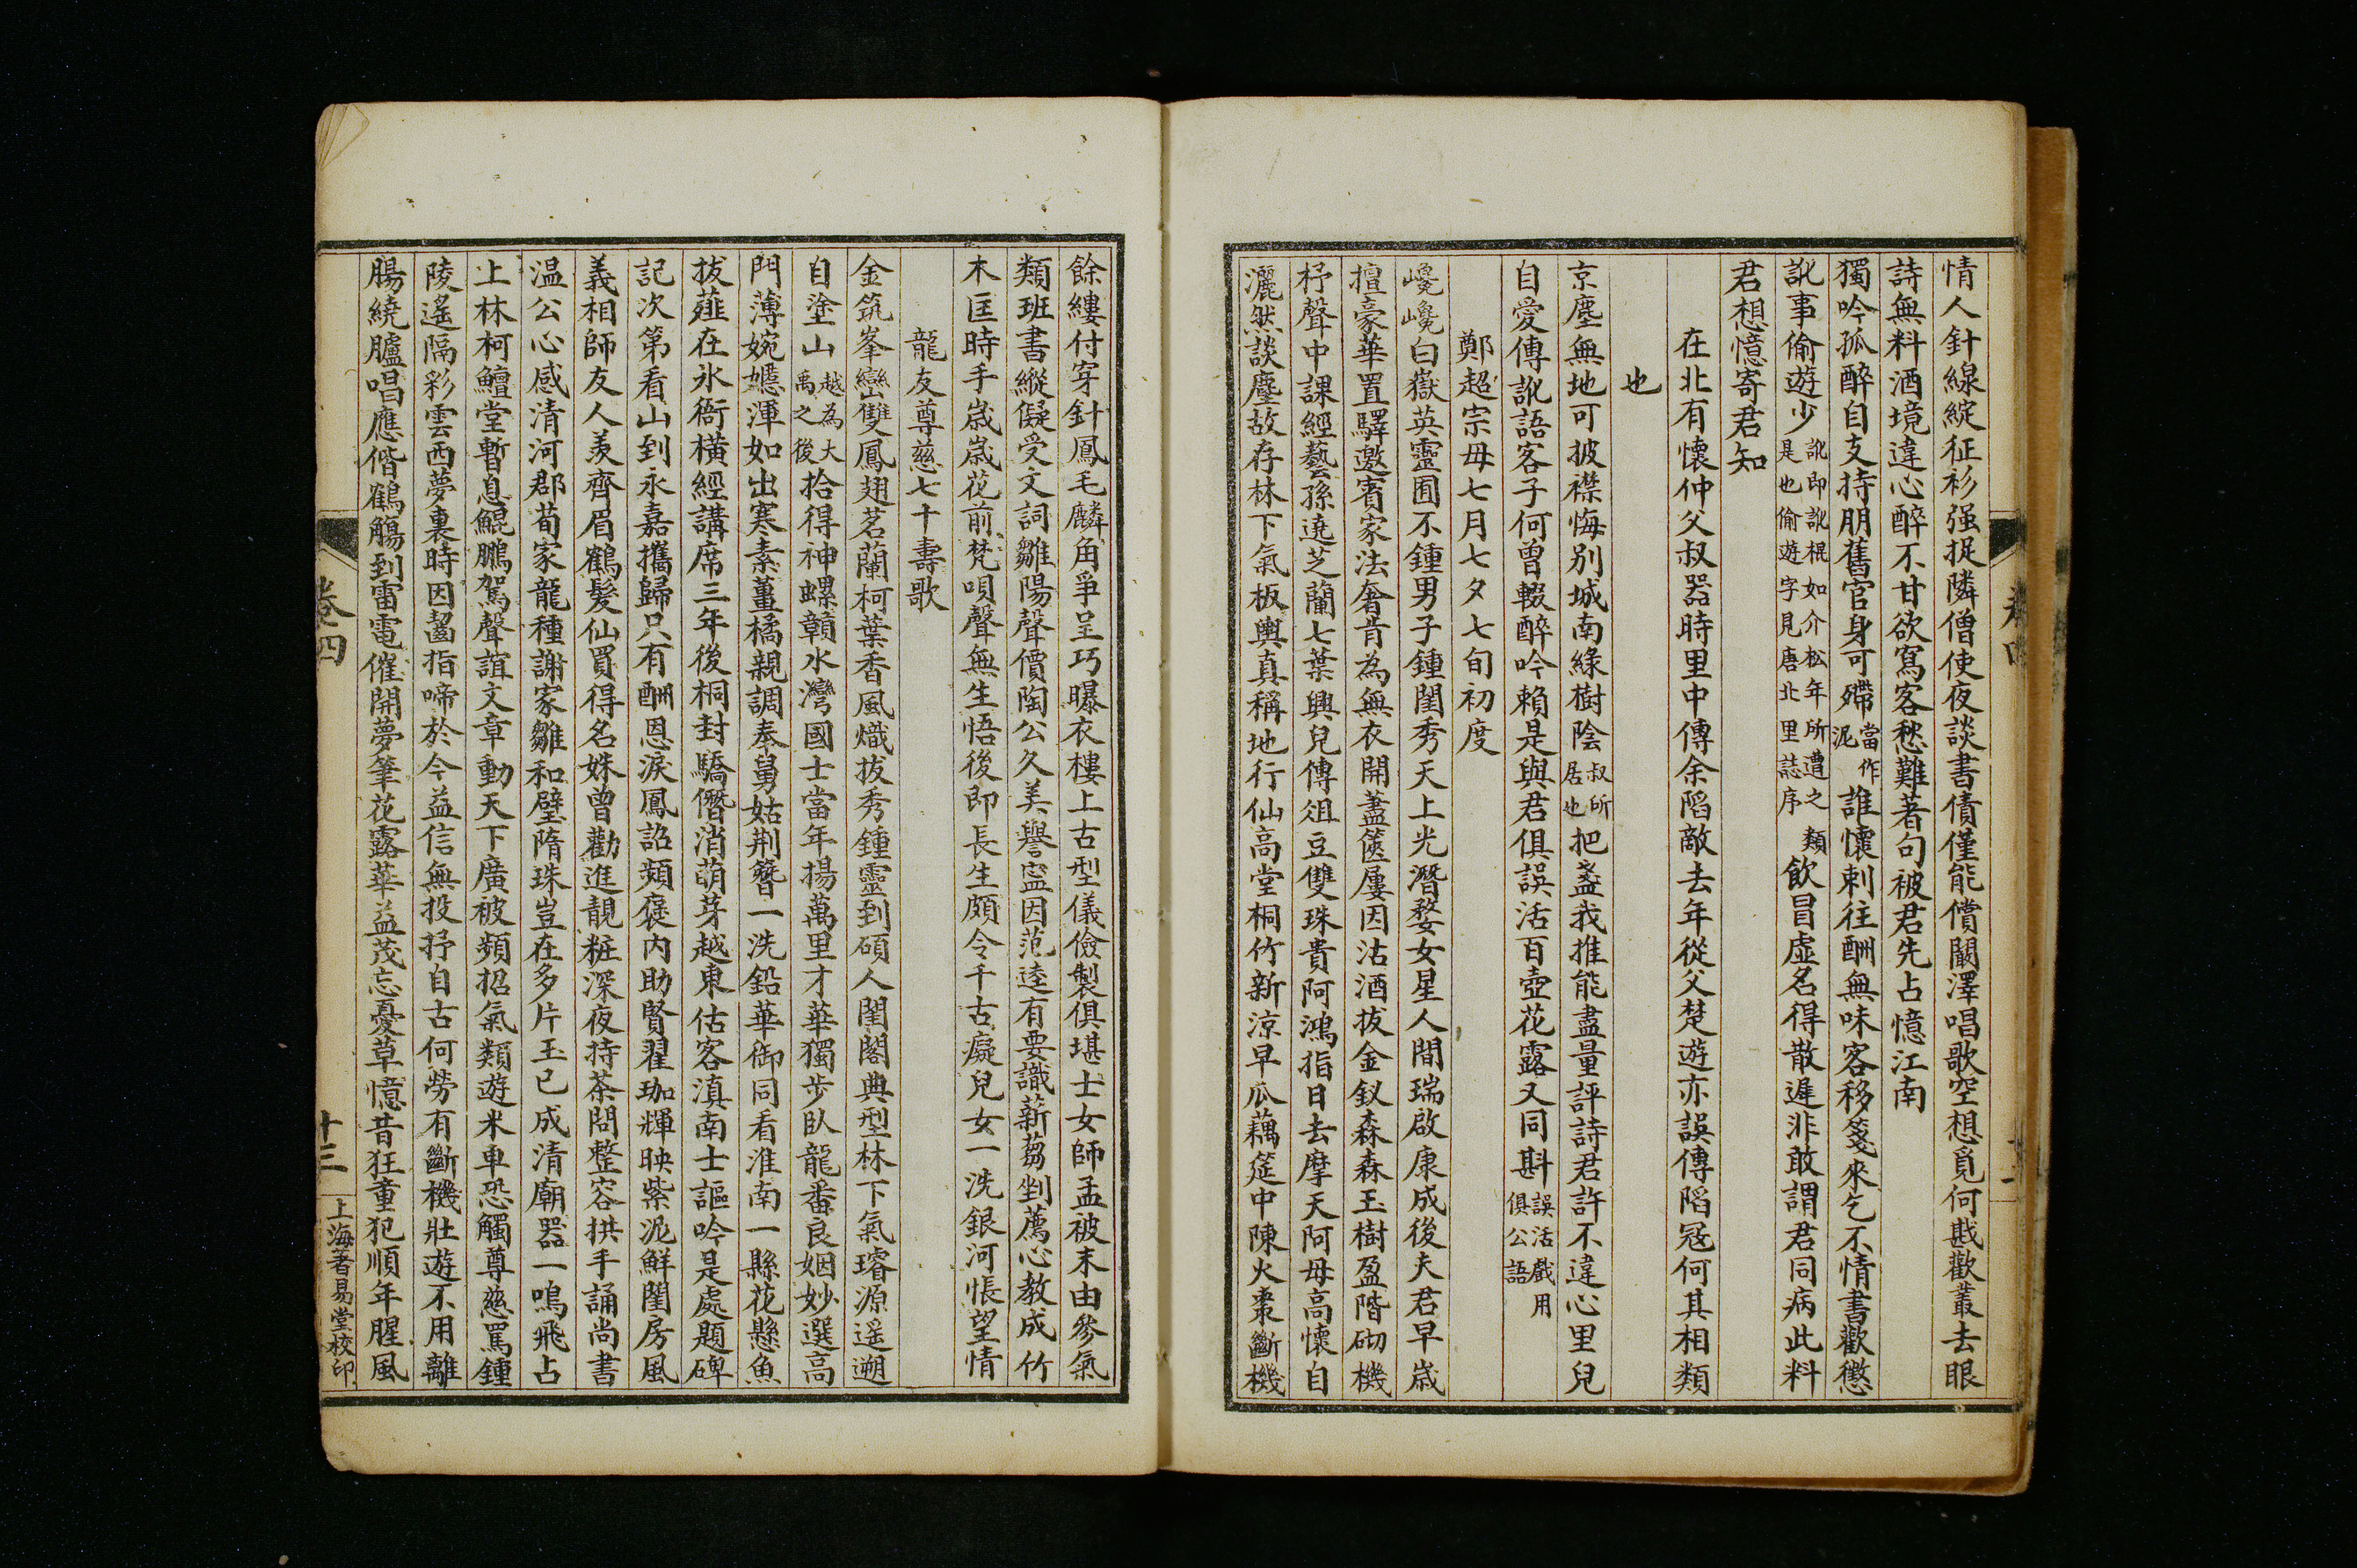 情人針線綻征衫强捉隣僧使夜談書債僅能償闞澤唱歌空想覓何戡歡叢去眼
詩無料酒境違心醉不甘欲寫客愁難著句被君先占憶江南
獨吟孤醉自支持朋舊官身可殢當作泥誰懷刺往酬無味客移箋來乞不情書歡懲
訛事偷遊少訛即訛棍如介松年所遭之類是也偷遊字見唐北里誌序飲冒虛名得散遲非敢謂君同病此料
君想憶寄君知
在北有懷仲父叔器時里中傳余陷敵去年從父楚遊亦誤傳陷冦何其相類
也
京塵無地可披襟悔別城南綠樹陰叔所居也把盞我推能盡量評詩君許不違心里兒
自愛傳訛語客子何曾輟醉吟賴是與君俱誤活百壺花露又同斟誤活戲用俱公語
鄭超宗母七月七夕七旬初度
巉巉白嶽英靈囿不鍾男子鍾閨秀天上光潛婺女星人間瑞啟康成後夫君早歲
擅豪華置驛邀賓家法奢肯為無衣開蓋篋屢因沽酒拔金釵森森玉樹盈階砌機
杼聲中課經藝孫遶芝蘭七葉興兒傳俎豆雙珠貴阿鴻指日去摩天阿母高懷自
灑然談麈故存林下氣板輿真稱地行仙高堂桐竹新涼早瓜藕筵中陳火棗斷機
餘縷付穿針鳳毛麟角爭呈巧曝衣樓上古型儀儉製俱堪士女師孟被末由參氣
類班書縱儗受文詞雛陽聲價陶公久美譽寍因范逵有要識薪蒭剉薦心教成竹
木匡時手歲歲花前梵唄聲無生悟後即長生頗令千古癡兒女一洗銀河悵望情
龍友尊慈七十壽歌
金筑峯巒雙鳳翅茗蘭柯葉香風熾拔秀鍾靈到碩人閨閣典型林下氣璿源遥遡
自塗山越為大禹之後拾得神螺贑水灣國士當年揚萬里才華獨步臥龍番良姻妙選高
門薄婉嬺渾如出寒素薑橘親調奉舅姑荆簪一洗鉛華御同看淮南一縣花懸魚
拔薤在氷衙橫經講席三年後桐封驕僭消萌芽越東估客滇南士謳吟是處題碑
記次第看山到永嘉攜歸只有酬恩淚鳳詔頻褒内助賢翟珈輝映紫泥鮮閨房風
義相師友人羨齊眉鶴髮仙買得名姝曾勸進靚粧深夜持茶問整容拱手誦尚書
温公心感清河郡荀家龍種謝家雛和璧隋珠豈在多片玉已成清廟器一鳴飛占
上林柯鱣堂暫息鯤鵬駕聲誼文章動天下廣被頻招氣類遊米車恐觸尊慈罵鍾
陵遙隔彩雲西夢裏時因齧指啼於今益信無投抒自古何勞有斷機壯遊不用離
腸繞臚唱應偕鶴觴到雷電催開夢筆花露華益茂忘憂草憶昔狂童犯順年腥風
卷四
十三
上海著易堂校印